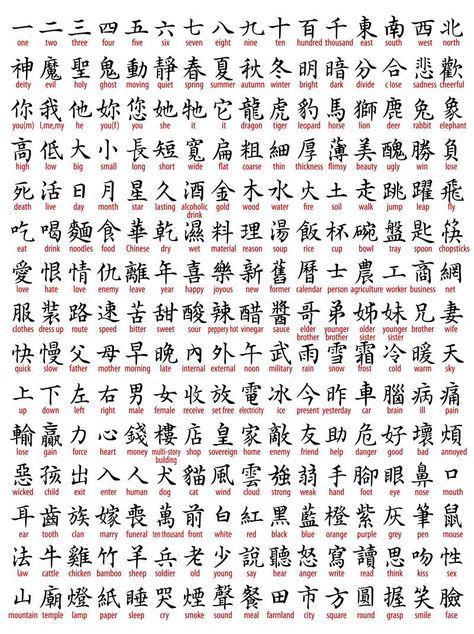 一二三四五六七八九十百千東南西北
one two three four five six seven eight nine ten hundred thousand east south west north
神魔聖鬼動靜春夏秋冬明暗分合悲歡
deity evil holy ghost moving quiet spring summer autumn winter bright dark divide close sadness cheerful
你我他妳您她牠它龍虎豹馬獅鹿兔象
you(m) I,me,my he you(f) you she it it dragon tiger leopard horse lion deer rabbit elephant
高低大小長短寬扁粗細厚薄美醜勝負
high low big small long short wide flat coarse thin thickness flimsy beauty ugly win lose
死活日月星久酒金木水火土走跳躍飛
death live day month star lasting alcoholic drink gold wood water fire soil walk jump leap fly
吃喝麵食華乾濕料理湯飯杯碗盤匙筷
eat drink noodles food Chinese dry wet material reason soup rice cup bowl tray spoon chopsticks
愛恨情仇離年喜樂新舊曆士農工商網
love hate love enemy leave year happy joyous new former calendar person agriculture worker business net
服裝路速苦甜酸辣醋醬哥弟姊妹兄妻
clothes dress up route speed bitter sweet sour peppery hot vinegar sauce elder brother younger brother elder sister younger sister brother wife
快慢父母早晚內外午軍雨雪霜冷暖天
quick slow father mother late internal external noon military rain snow frost cold warm sky
上下左右男女收放電冰今昨車腦病痛
up down left right male female receive set free electricity ice present yesterday car brain ill pain
輸贏力心錢樓店皇家敵友助危好壞煩
lose gain force heart money multi-story building shop sovereign home enemy friend help danger good bad annoyed
惡孩出入人犬貓風雲強弱手腳眼鼻口
wicked child exit enter human dog cat wind cloud strong weak hand foot eye nose mouth
耳齒族嫁喪萬前白紅黑藍橙紫灰筆鼠
ear tooth clan marry funeral ten thousand front white red black blue orange purple grey pen mouse
法牛雞竹羊兵老少說聽怒寫讀思吻性
law cattle chicken bamboo sheep soldier old young say hear anger write read think kiss sex
山廟燈紙睡哭煙聲餐田市方圓握笑臉
mountain temple lamp paper sleep cry smoke sound meal farmland city square round grasp smile face